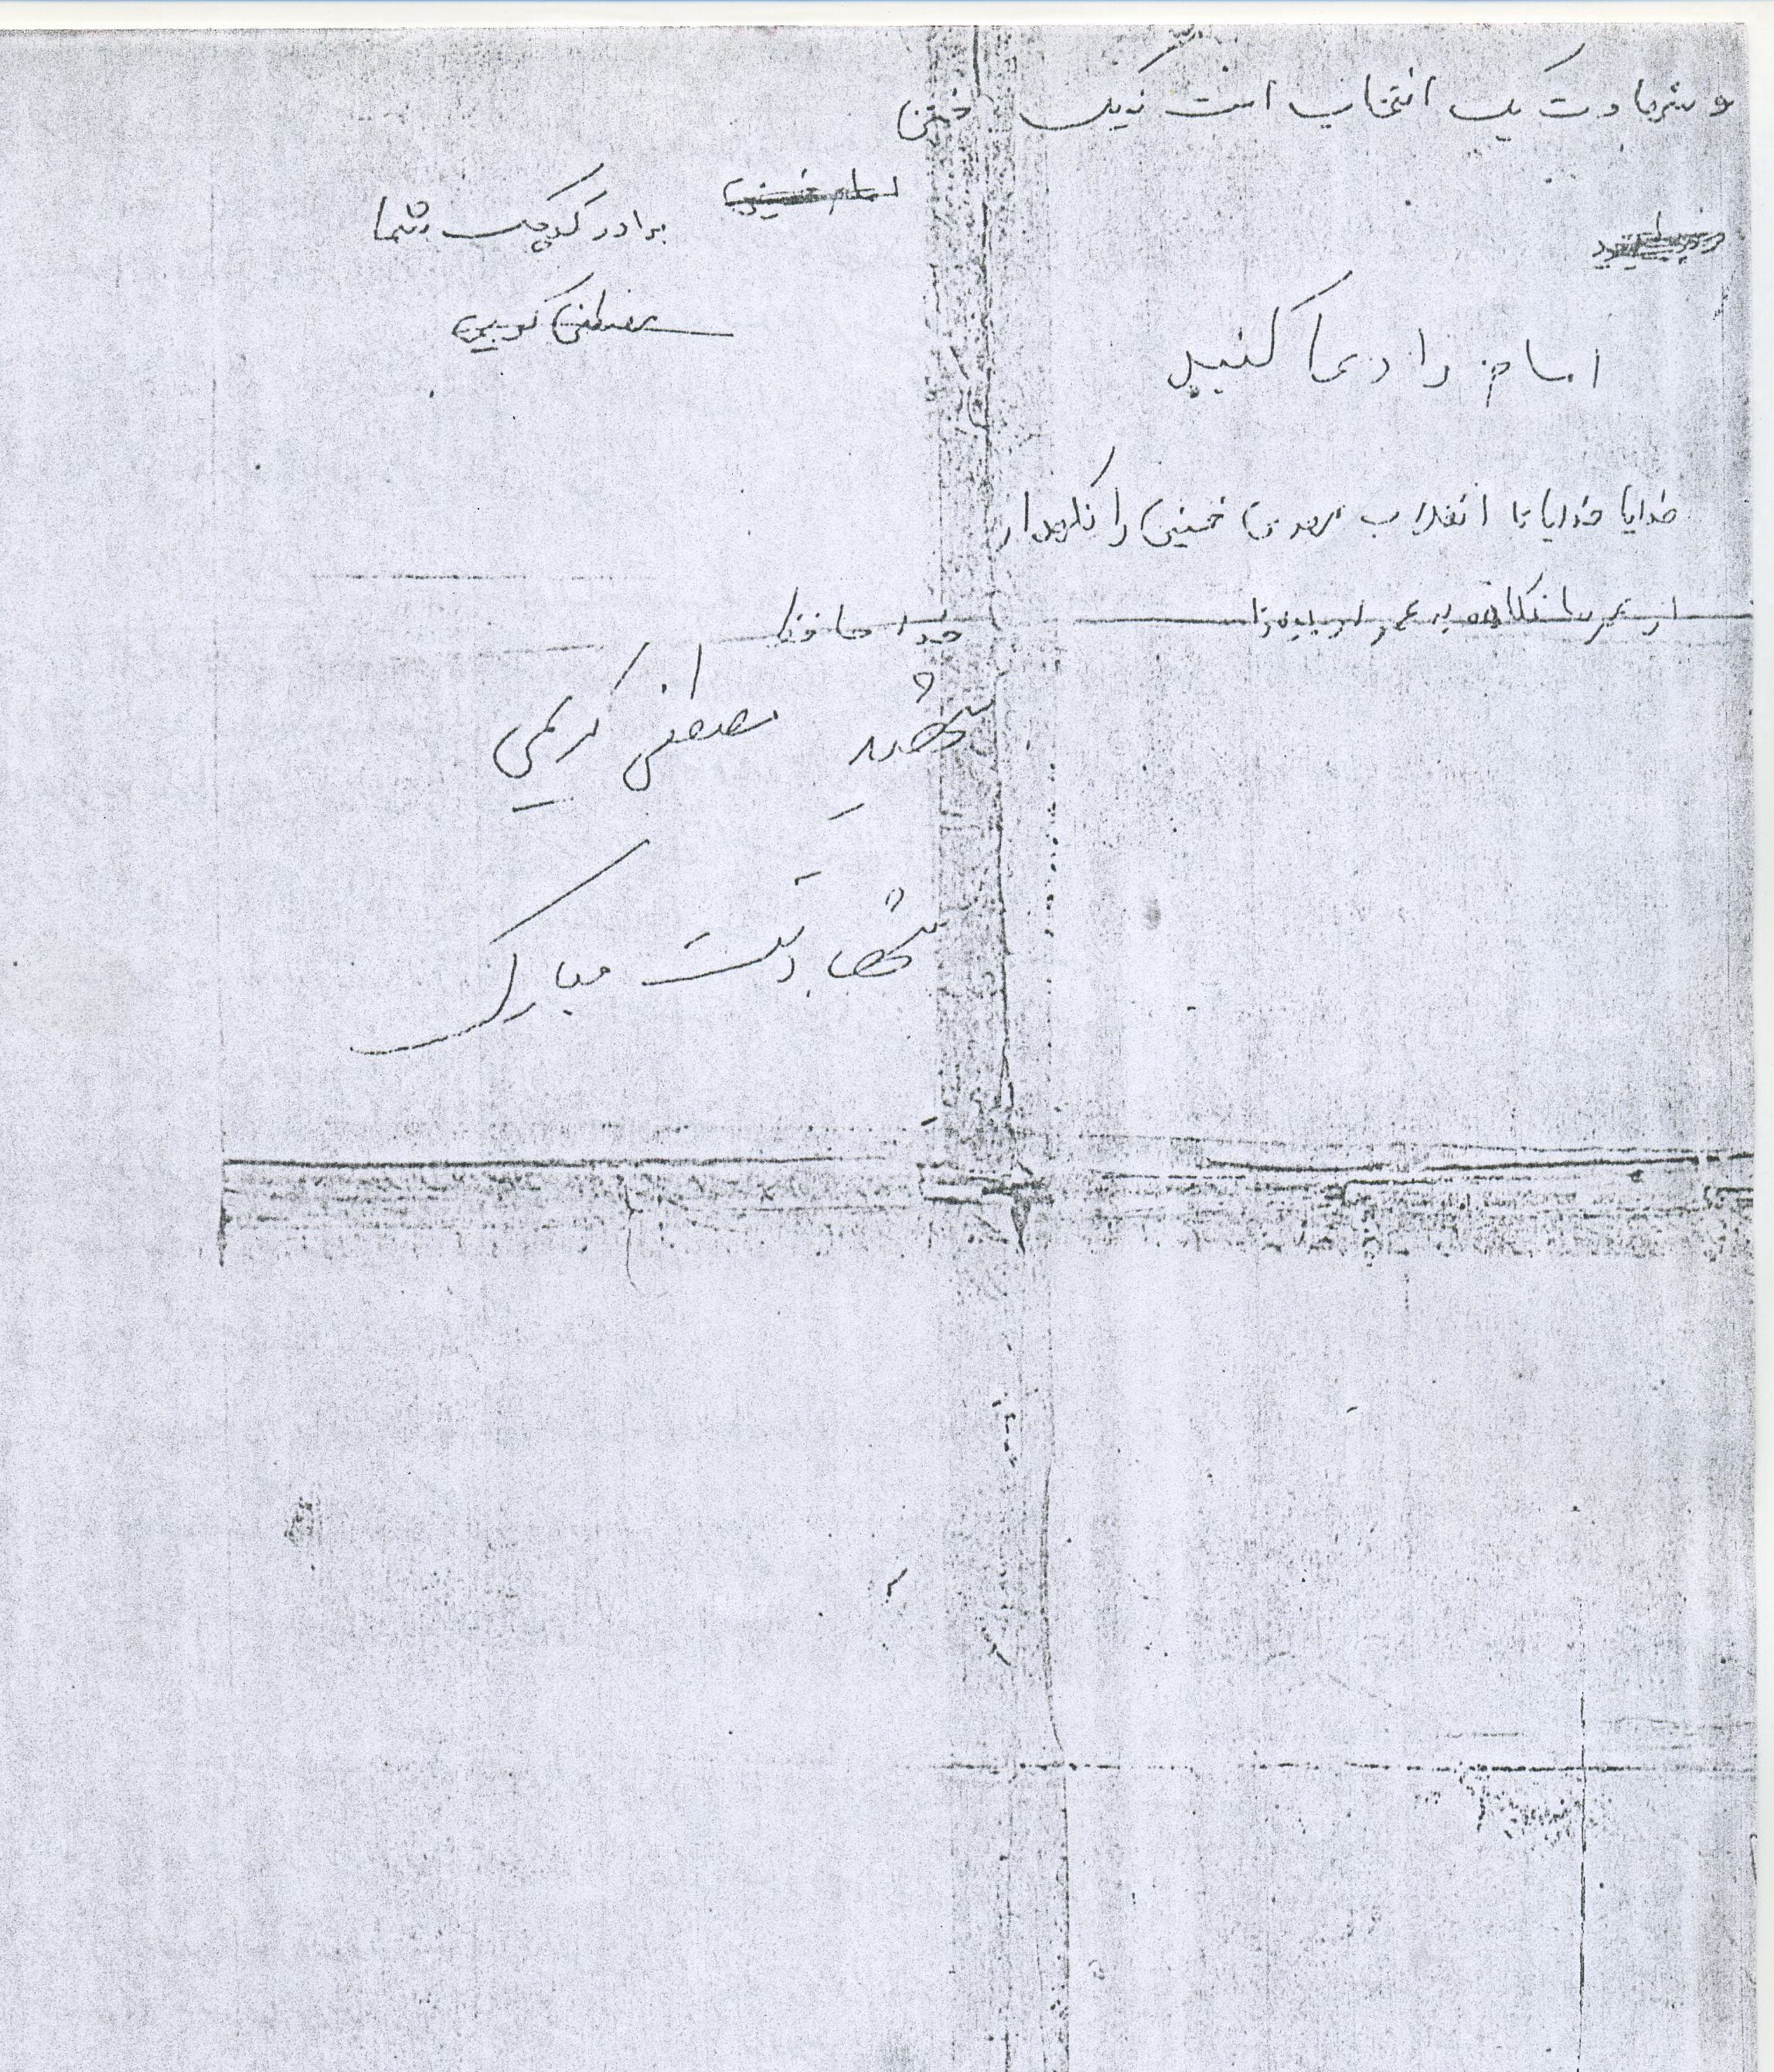 و شهادت یک انتخاب است نه یک
برادر کوچک شما
مصطفی کریمی
امام را دعا کنید
خدایا خدایا تا انقلاب مهدی خمینی را نگهدار
از عمر ما بکاه و بر عمر او بیفزا
خدا حافظ
شهید مصطفی کریمی
شهادتت مبارک